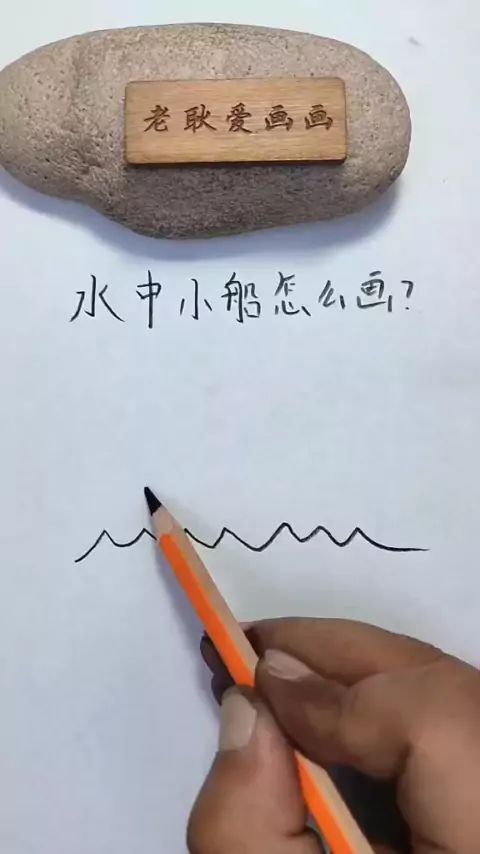 老耿爱画画
水中小船怎么画?